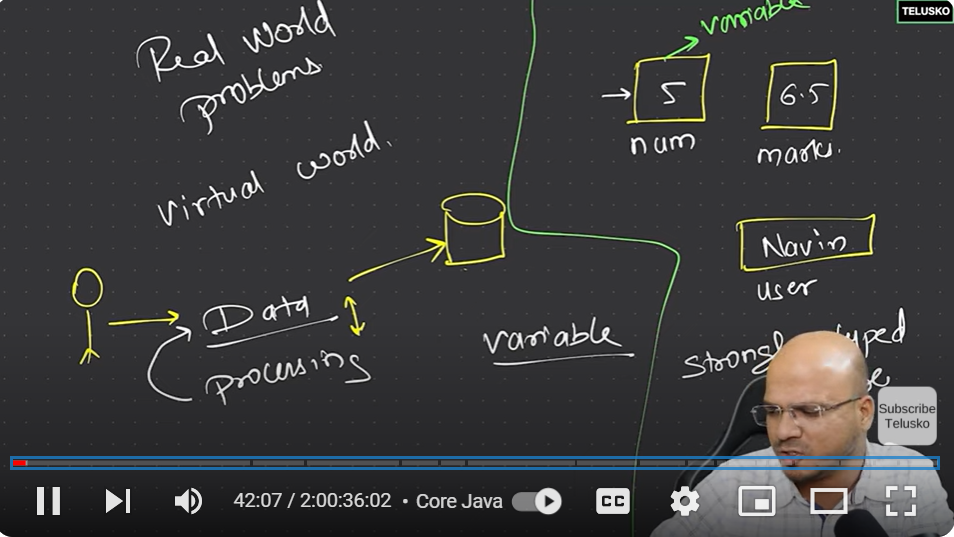 TELUSKO
Real World
problems
virtual world.
Data
processing
variable
variable
5
num
6.5
marks.
Navin
user
Subscribe
Telusko
42:07 / 2:00:36:02 • Core Java
CC